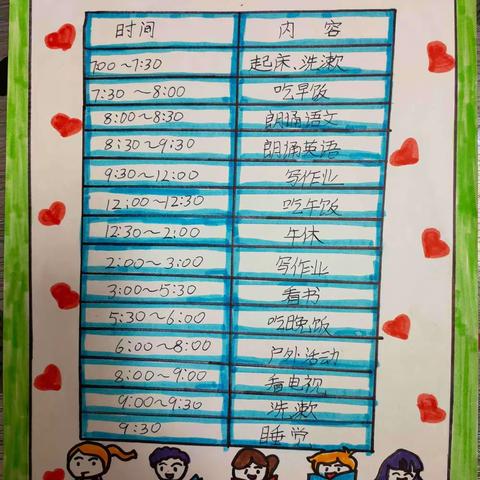 时间 内容
700~7:30 起床、洗漱
7:30~8:00 吃早饭
8:00~8:30 朗诵语文
8:30~9:30 朗诵英语
9:30~12:00 写作业
12:00~12:30 吃午饭
12:30~2:00 午休
2:00~3:00 写作业
3:00~5:30 看书
5:30~6:00 吃晚饭
6:00~8:00 户外活动
8:00~9:00 看电视
9:00~9:30 洗漱
9:30 睡觉